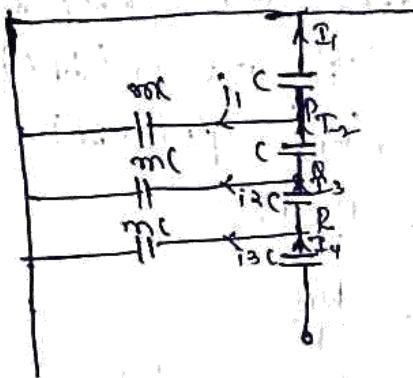 I₁
C
mC
i₁
P
I₂
C
mC
i₂
C
I₃
mC
R
i₃
C
I₄